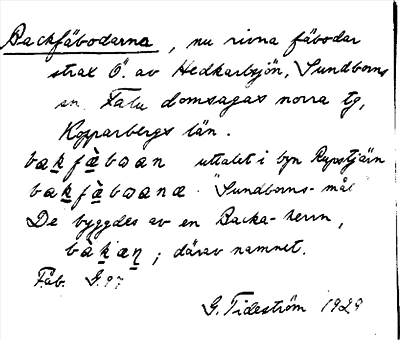 Backfäbodarna, nu rivna fäbodar
strax Ö. av Hedkarbsjön, Sundborns
sn. Falu domsagas norra tg,
Kopparbergs län.
bak̲fæ̀boan uttalet i byn Rupstjärn
bak̲fæ̀boanæ "Sundborns-mål
De byggdes av en Backa-herrn,
bàk̲an̲; därav namnet.
Fäb. G.97
G. Tideström 1929